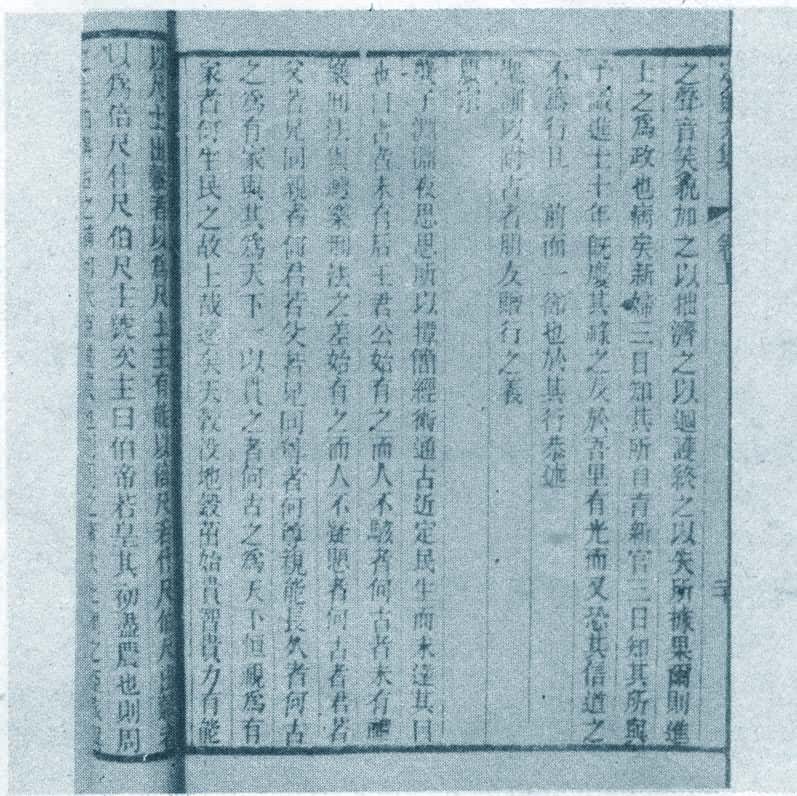 定盦文集 卷上
之聲音笑貌加之以拙濟之以迴護終之以失所據果爾則進
士之爲政也病矣新婦三日知其所自育新官三日知其所與
予誠進士十年旣慶其祿之及於吾里有光而又恐其信道之
不篤行且一前而一卻也於其行恭述
先訓以附古者朋友贈行之義
農宗
龔子淵淵夜思思所以撢簡經術通古近定民生而未達其目
也曰古者未有后王君公始有之而人不駭者何古者未有禮
樂刑法與禮樂刑法之差始有之而人不疑懼者何古者君若
父若兄同親者何君若父若兄同尊者何尊親能長久者何古
之爲有家與其爲天下一以貫之者何古之爲天下恒視爲有
家者何生民之故上哉遠矣天穀沒地穀茁始貴智貴力有能
以尺土出穀者以爲尺土主有能以倍尺若什尺伯尺出穀者
以爲倍尺什尺伯尺主號次主曰伯帝若皇其初盡農也則周